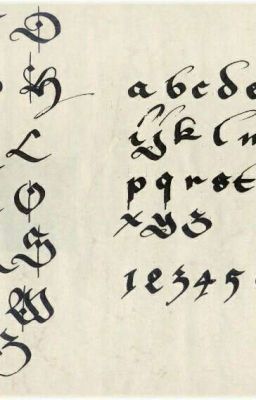 D
H
L
O
S
W
Z
a b c d e
i j k l m
p q r s t
x y z
1 2 3 4 5